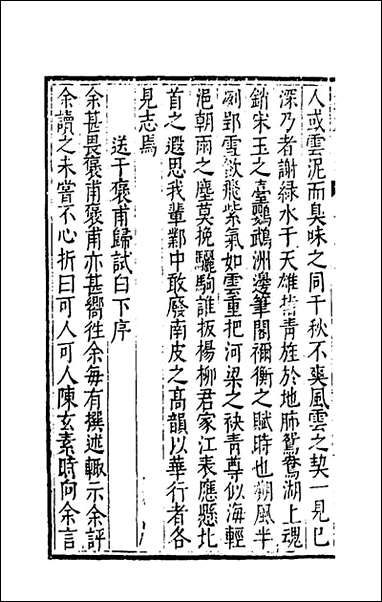 人或雲泥而臭味之同千秋不爽風雲之契一見已
深乃者謝綠水于天雄指青旌於地肺鴛鴦湖上魂
銷宋玉之臺鸚鵡洲邊筆閣禰衡之賦時也朔風半
剡郢雲欲飛紫氣如雲重把河梁之袂青尊似海輕
浥朝雨之塵莫挽驪駒誰扳楊柳君家江表應懸北
首之遐思我輩鄴中敢廢南皮之高韻以華行者各
見志焉
送于褒甫歸試白下序
余甚畏褒甫褒甫亦甚嚮往余每有撰述輒示余評
余讀之未嘗不心折曰可人可人陳玄素時向余言